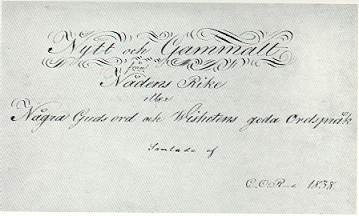 Nytt och Gammalt
från
Nådens Rike
eller
Några Guds ord och Wishetens goda Ordspråk
Samlade af
C.O. 1838